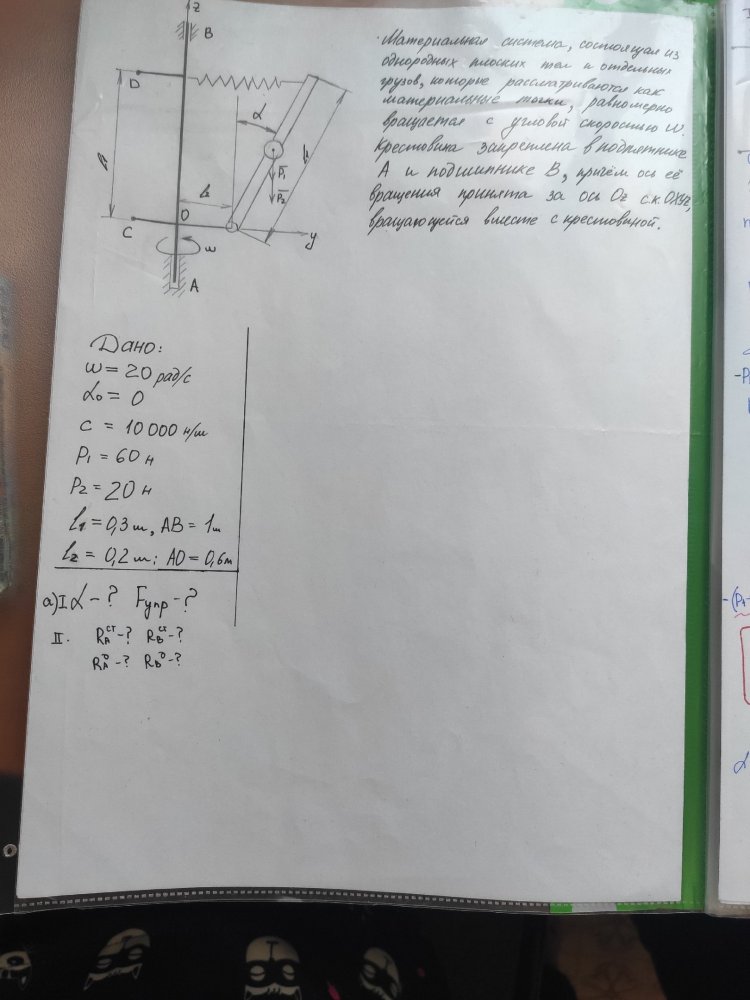 z
B
Материальная система, состоящая из
однородных плоских тел и отдельных
грузов, которые рассматриваются как
материальные точки, равномерно
вращается с угловой скоростью ω.
Крестовина закреплена в подпятнике
A и подшипнике B, причём ось её
вращения принята за ось Oz с.к. OXYZ,
вращающейся вместе с крестовиной.
D
α
l₁
P̄₁
P̄₂
l₂
C
O
y
ω
A
Дано:
ω = 20 рад/с
α₀ = 0
c = 10 000 н/м
P₁ = 60 н
P₂ = 20 н
l₁ = 0,3 м, AB = 1м
l₂ = 0,2 м; AO = 0,6м
а) I α - ? Fупр - ?
II. Rᴀᶜᵀ - ? Rʙᶜᵀ - ?
Rᴀᴰ - ? Rʙᴰ - ?